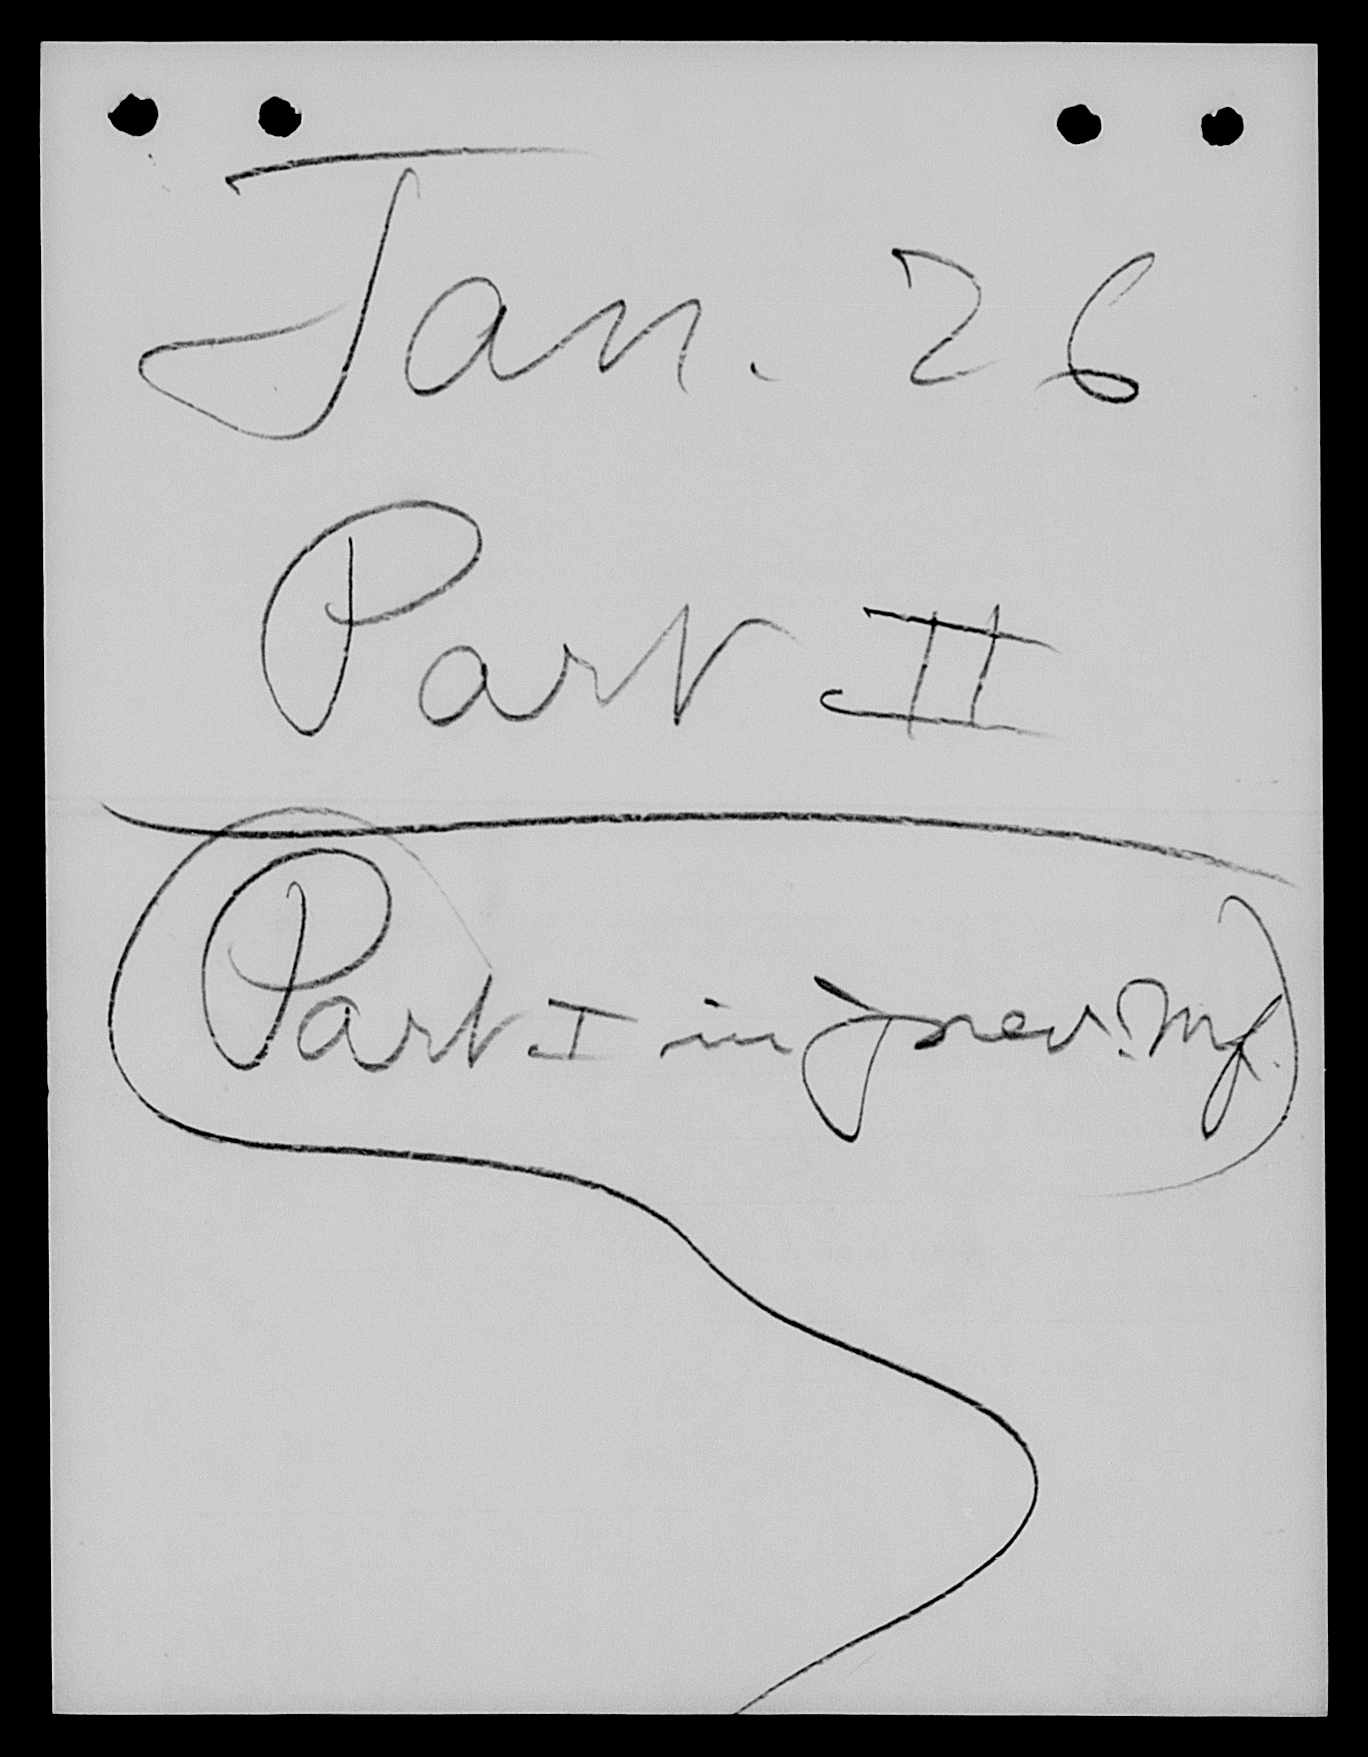 Jan. 26
Part II
Part I in prev. Mtg.